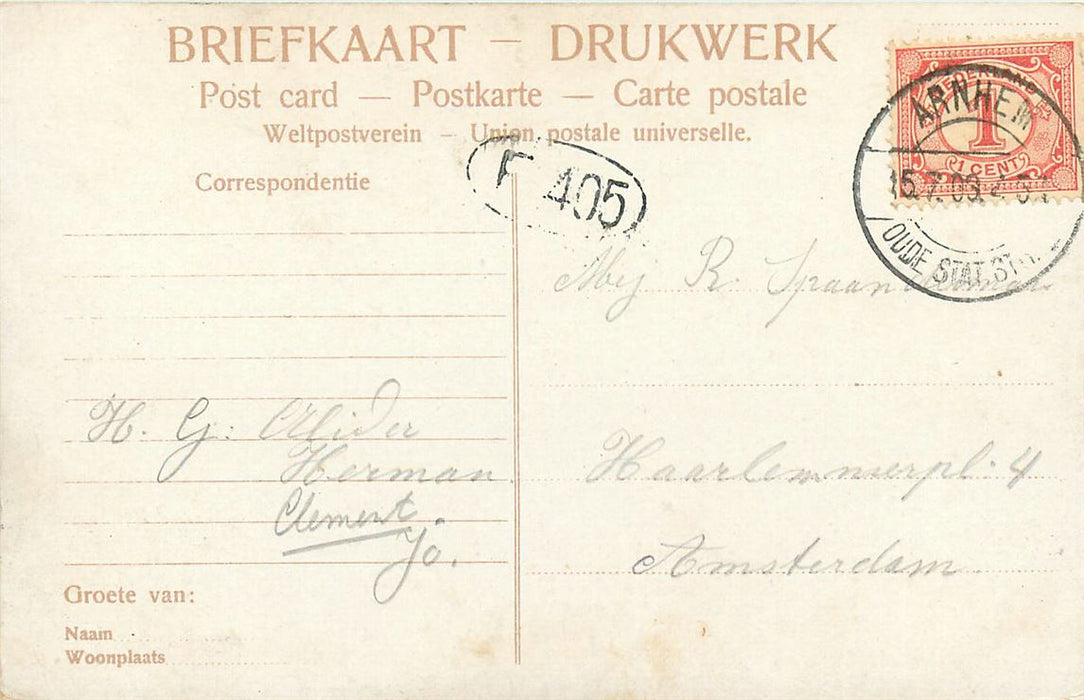 BRIEFKAART — DRUKWERK
Post card — Postkarte — Carte postale
Weltpostverein – Union postale universelle.
Correspondentie
NEDERLAND
1
1 CENT
ARNHEM
OUDE STAT. STR.
F 405
Mej R. Spaanderman
H. G: Alider
Herman
Clement
Jo.
Haarlemmerpl. 4
Amsterdam
Groete van:
Naam
Woonplaats